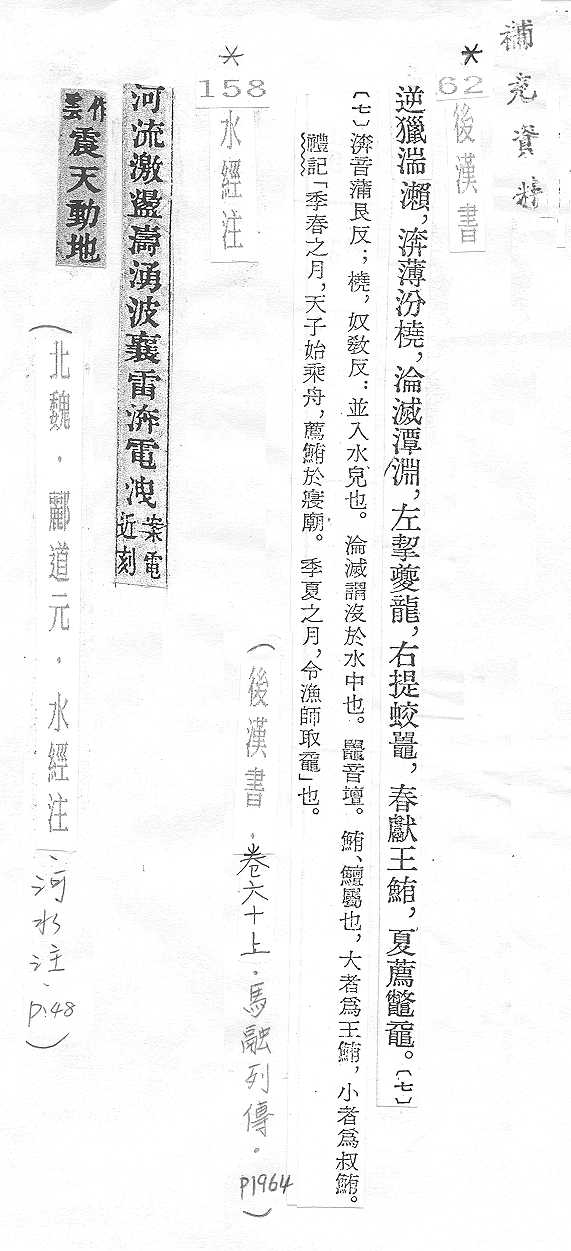 補充資料
*
62
後漢書
逆獵湍瀨，渀薄汾橈，淪滅潭淵，左挈夔龍，右提蛟鼉，春獻王鮪，夏薦鼈黿。〔七〕
〔七〕渀音蒲艮反；橈，奴敎反：並入水皃也。淪滅謂沒於水中也。鼉音壇。鮪、鱣屬也，大者爲王鮪，小者爲叔鮪。
禮記「季春之月，天子始乘舟，薦鮪於寑廟。季夏之月，令漁師取黿」也。
（後漢書．卷六十上．馬融列傳．P1964）
*
158
水經注
河流激盪濤湧波襄雷渀電洩案電近刻
作雲震天動地
（北魏．酈道元．水經注、河水注、P.48）